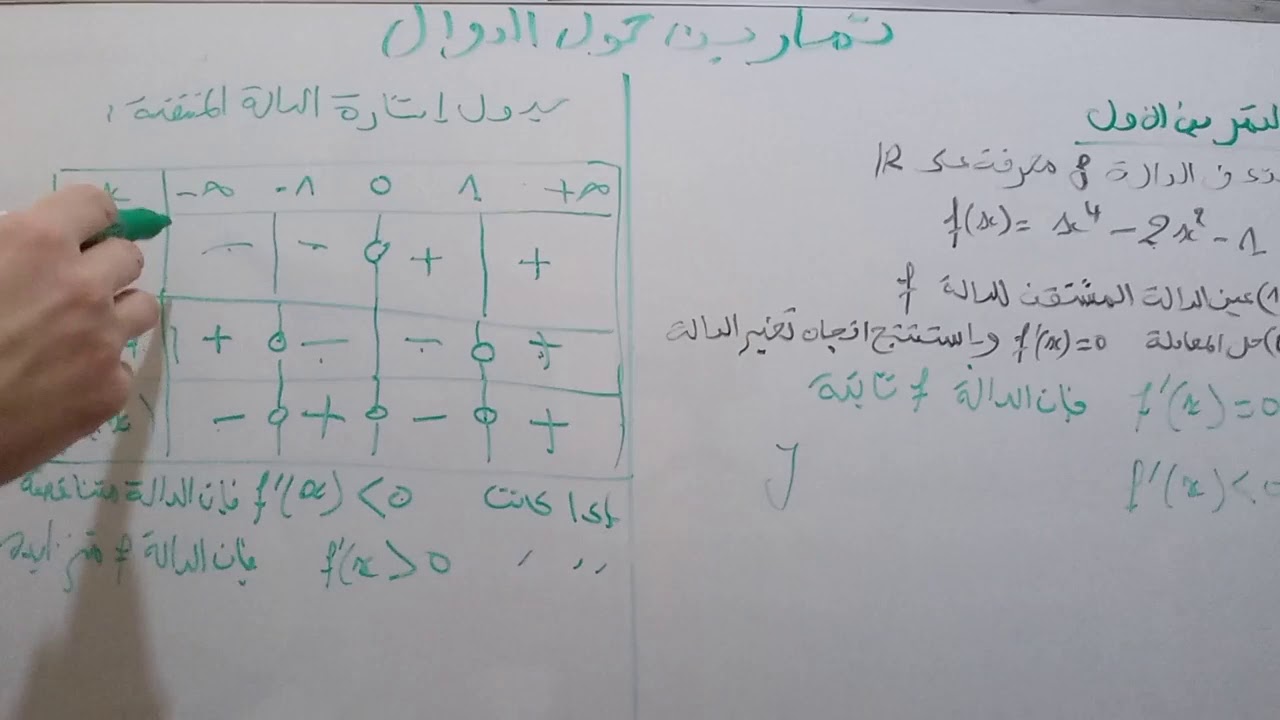 تمارين حول الدوال
التمرين الأول
الدالة f معرفة على IR
f(x) = x⁴ - 2x² - 1
1) عين الدالة المشتقة للدالة f
) حل المعادلة f'(x)=0 واستنتج اتجاه تغير الدالة
f'(x)=0 فإن الدالة f ثابتة
f'(x)<0
جدول إشارة الدالة المشتقة :
x -∞ -1 0 1 +∞
- - 0 + +
+ 0 - - 0 +
- 0 + 0 - 0 +
إذا كانت f'(x) <0 فإن الدالة متناقصة
,, , f'(x >0 فإن الدالة f متزايدة